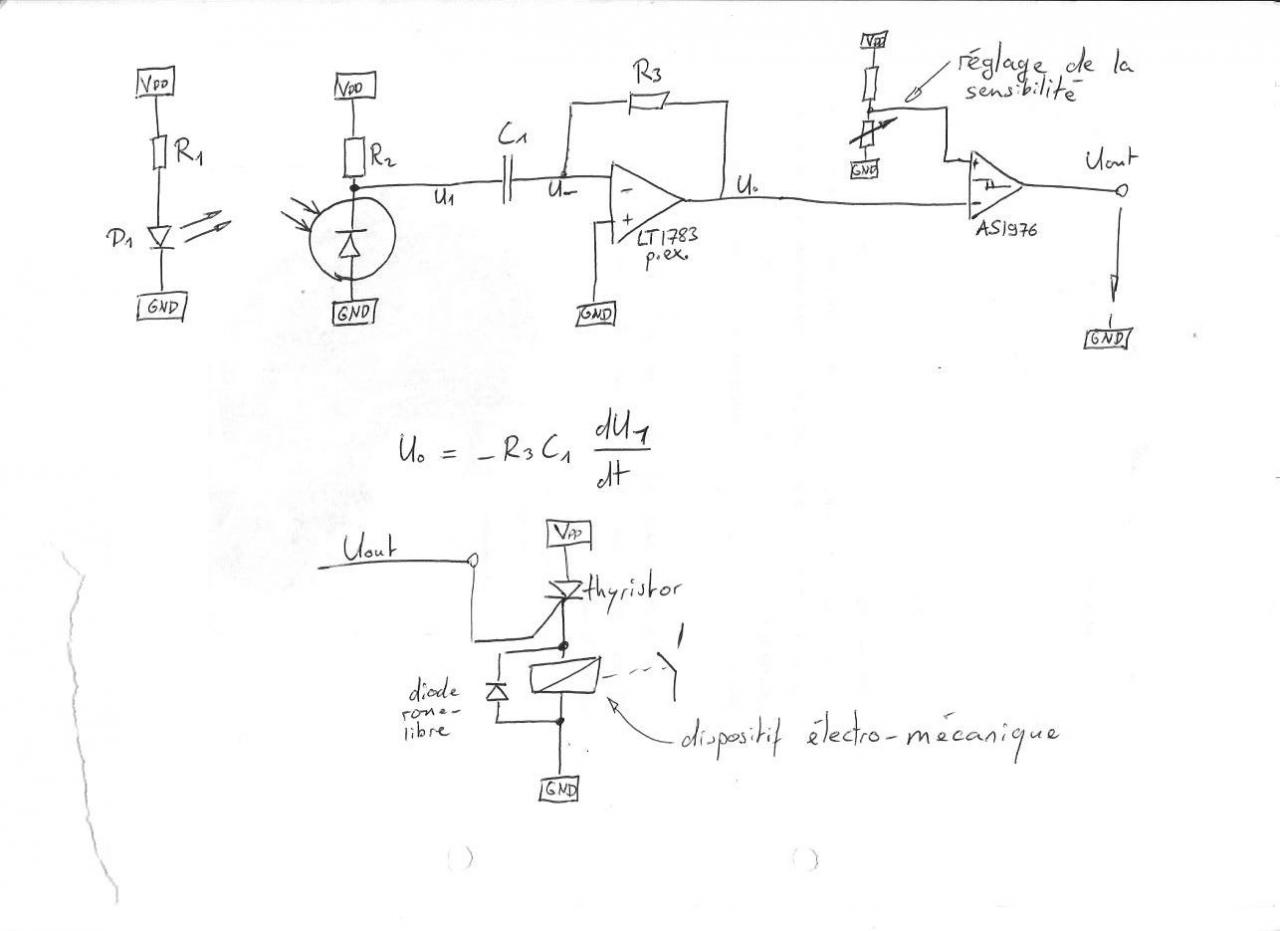 VDD
R1
D1
GND
VDD
R2
U1
GND
C1
U_
R3
-
+
LT1783
p.ex.
GND
U0
VDD
réglage de la
sensibilité
GND
+
-
AS1976
Uout
GND
U0 = -R3C1 dU1
dt
Uout
VDD
thyristor
diode
roue-
libre
dispositif électro-mécanique
GND